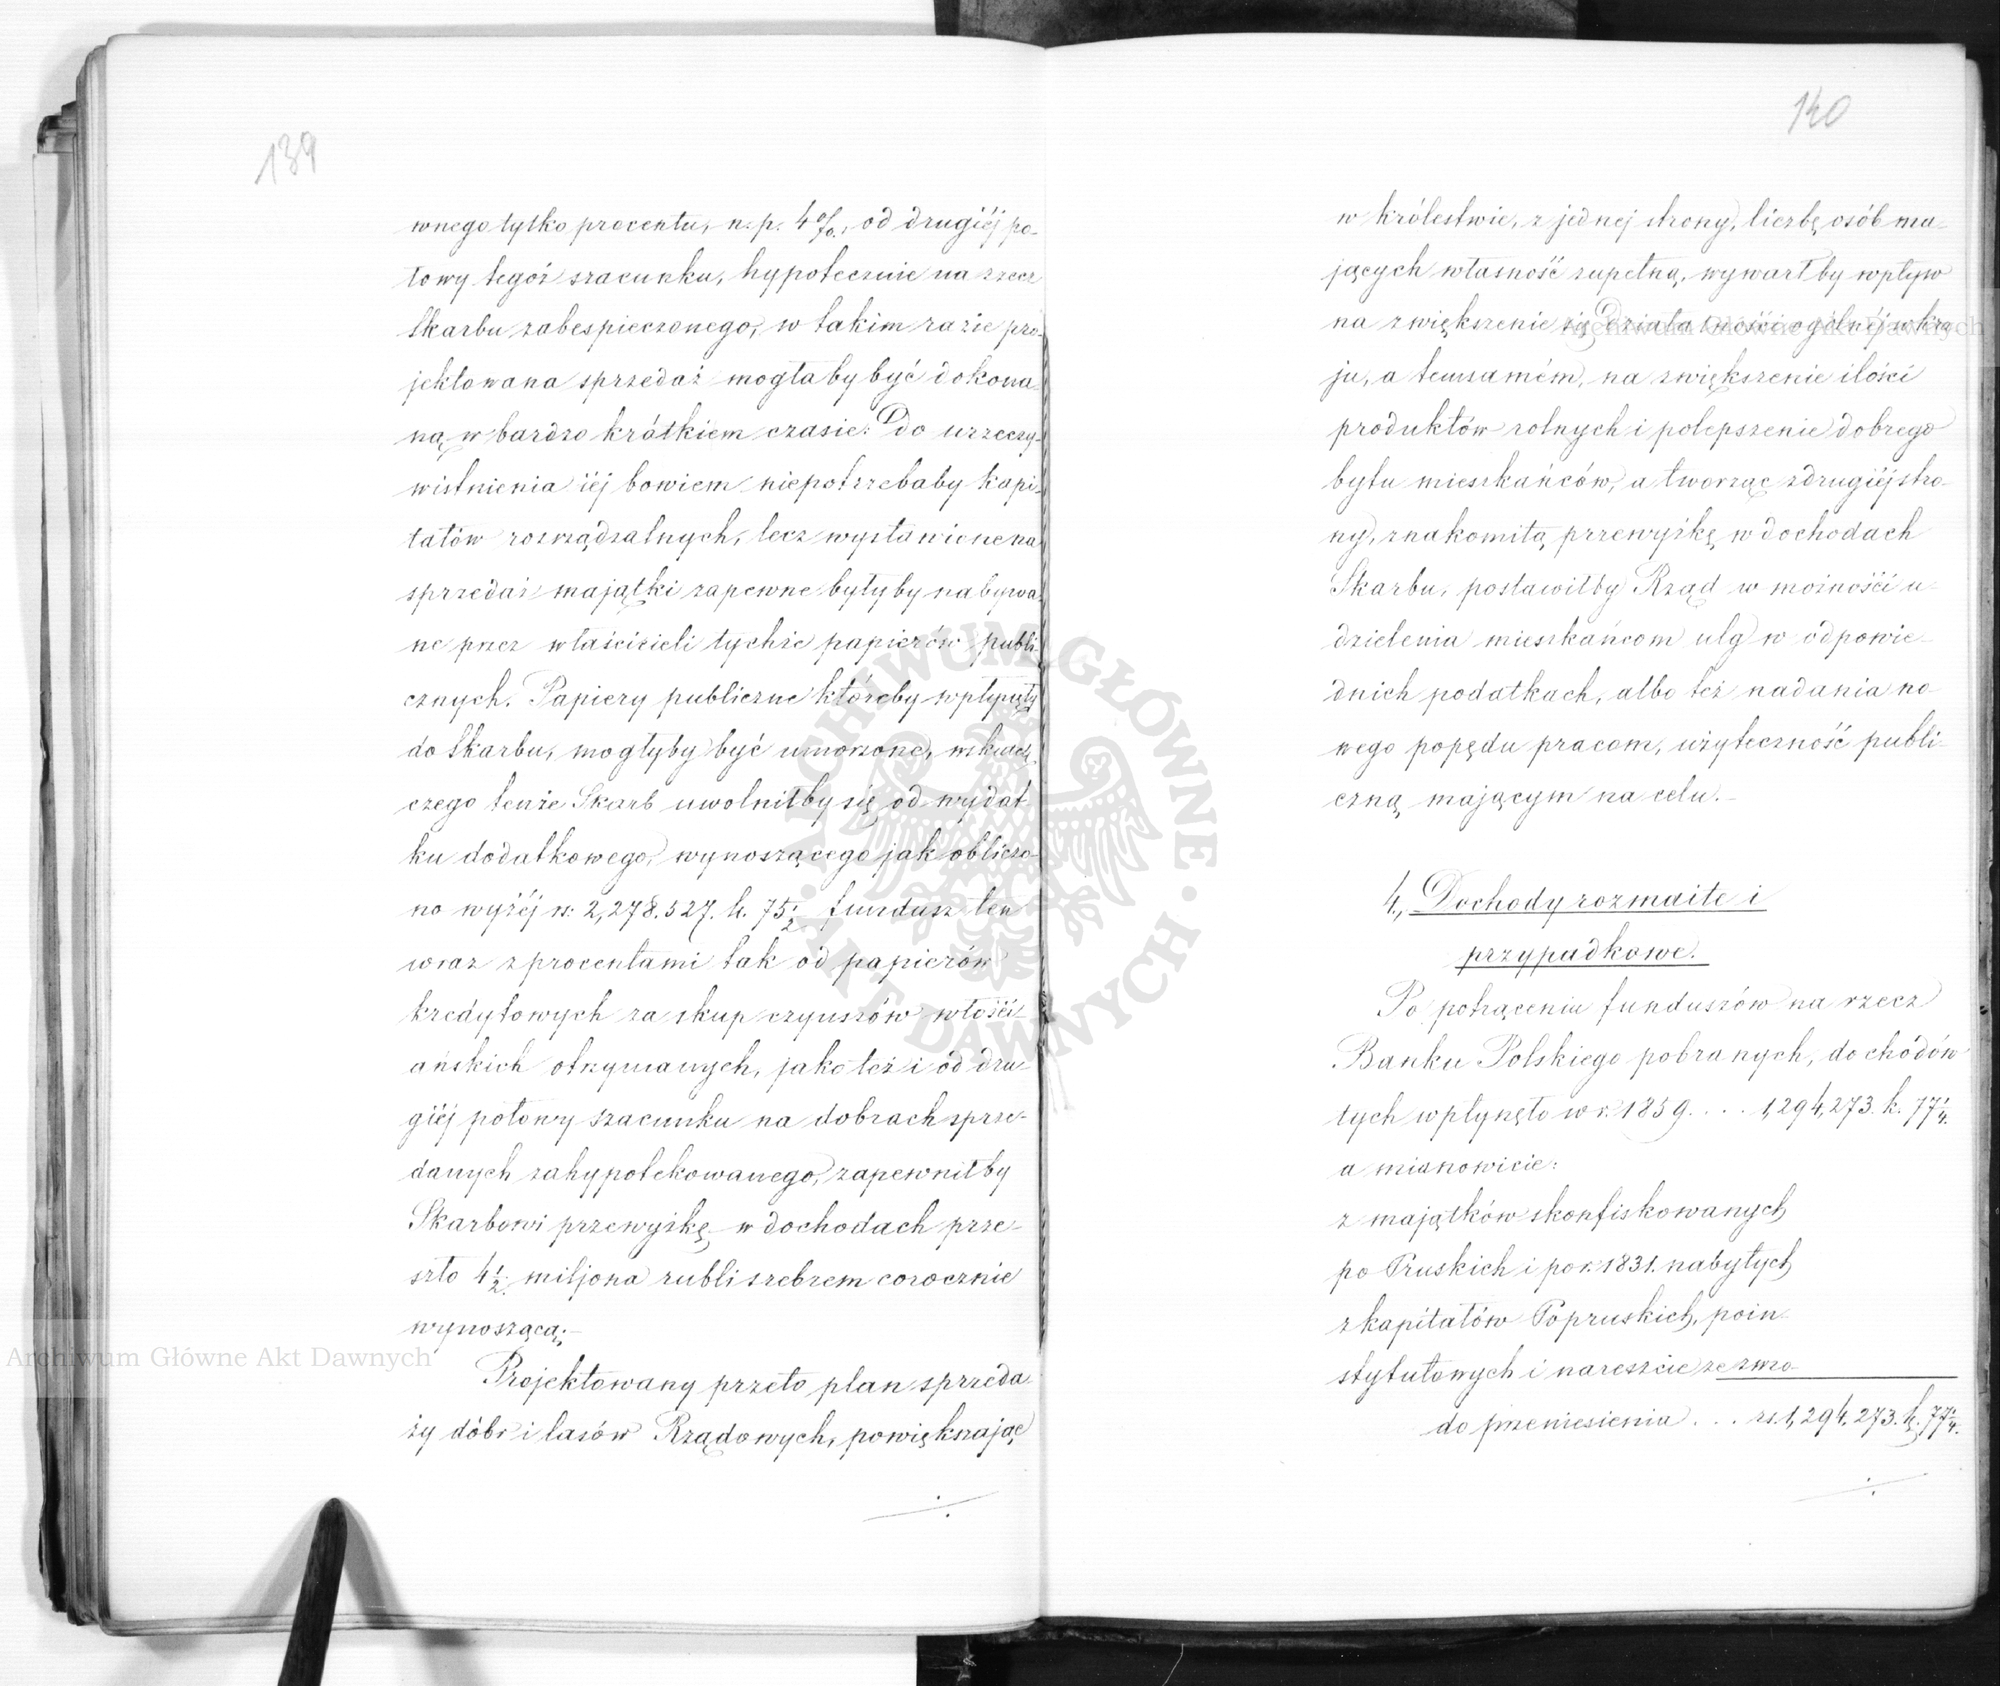 139
wnego tylko procentu, n. p. 4%, od drugiéj po-
łowy tegoż szacunku, hypotecznie na rzecz
Skarbu zabespieczonego, w takim razie pro-
jektowana sprzedaż mogłaby być dokona-
ną w bardzo krótkiem czasie: Do urzeczy-
wistnienia iéj bowiem niepotrzebaby kapi-
tałów rozrządzalnych, lecz wystawione na
sprzedaż majątki zapewne byłyby nabywa-
ne przez właścicieli tychże papierów publi-
cznych. Papiery publiczne któreby wpłynęły
do Skarbu, mogłyby być umorzone, wskutek
czego tenże Skarb uwolniłby się od wydat-
ku dodatkowego, wynoszącego jak obliczo-
no wyżéj rs: 2,278.527. k. 75½ fundusz ten
wraz z procentami tak od papierów
kredytowych za skup czynszów włości-
ańskich otrzymanych, jako też i od dru-
giéj połowy szacunku na dobrach sprze-
danych zahypotekowanego, zapewniłby
Skarbowi przewyżkę w dochodach prze-
szło 4½ miljona rubli srebrem corocznie
wynoszącą.-
Projektowany przeto plan sprzeda-
ży dóbr i lasów Rządowych, powiększając
140
w królestwie, z jednej strony, liczbę osób ma-
jących własność zupełną, wywarłby wpływ
na zwiększenie się działalności ogólnéj w kra-
ju, a temsamém, na zwiększenie ilości
produktów rolnych i polepszenie dobrego
bytu mieszkańców, a tworząc z drugiéj stro-
ny, znakomitą przewyżkę w dochodach
Skarbu, postawiłby Rząd w możności u-
dzielenia mieszkańcom ulg w odpowie-
dnich podatkach, albo też nadania no-
wego popędu pracom, użyteczność publi-
czną mającym na celu.-
4., Dochody rozmaite i
przypadkowe.
Po potrąceniu funduszów na rzecz
Banku Polskiego pobranych, dochodów
tych wpłynęło w r. 1859. . . . 1,294,273. k. 77¼.
a mianowicie:
z majątków skonfiskowanych
po Pruskich i po r. 1831. nabytych
z kapitałów Popruskich, poin-
stytutowych i nareszcie ze zwro-
do przeniesienia . . . rs. 1,294,273. k. 77¼.
ARCHIWUM GŁÓWNE · AKT DAWNYCH ·
Archiwum Główne Akt Dawnych
Archiwum Główne Akt Dawnych